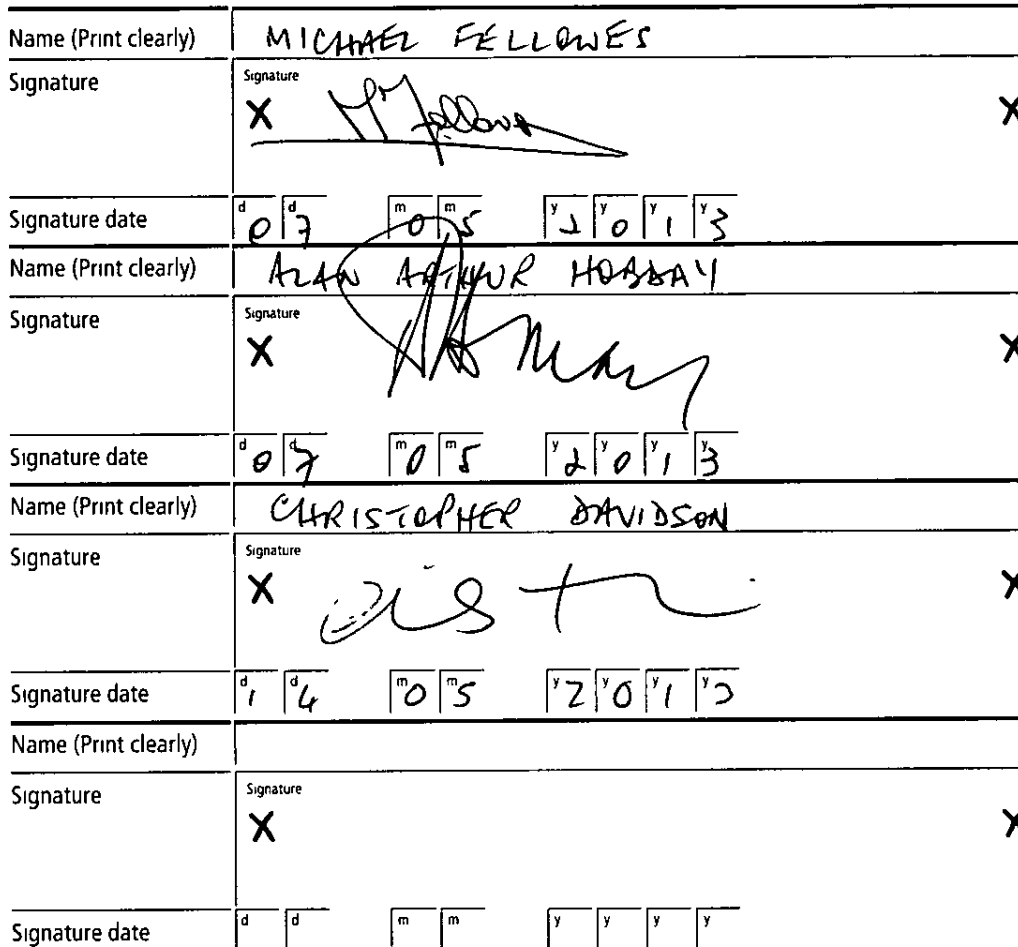 Name (Print clearly) MICHAEL FELLOWES
Signature Signature
X M Fellowes X
Signature date d 0 d 7 m 0 m 5 y 2 y 0 y 1 y 3
Name (Print clearly) ALAN ARTHUR HOBDAY
Signature Signature
X X
Signature date d 0 d 7 m 0 m 5 y 2 y 0 y 1 y 3
Name (Print clearly) CHRISTOPHER DAVIDSON
Signature Signature
X X
Signature date d 1 d 4 m 0 m 5 y 2 y 0 y 1 y 3
Name (Print clearly)
Signature Signature
X X
Signature date d d m m y y y y